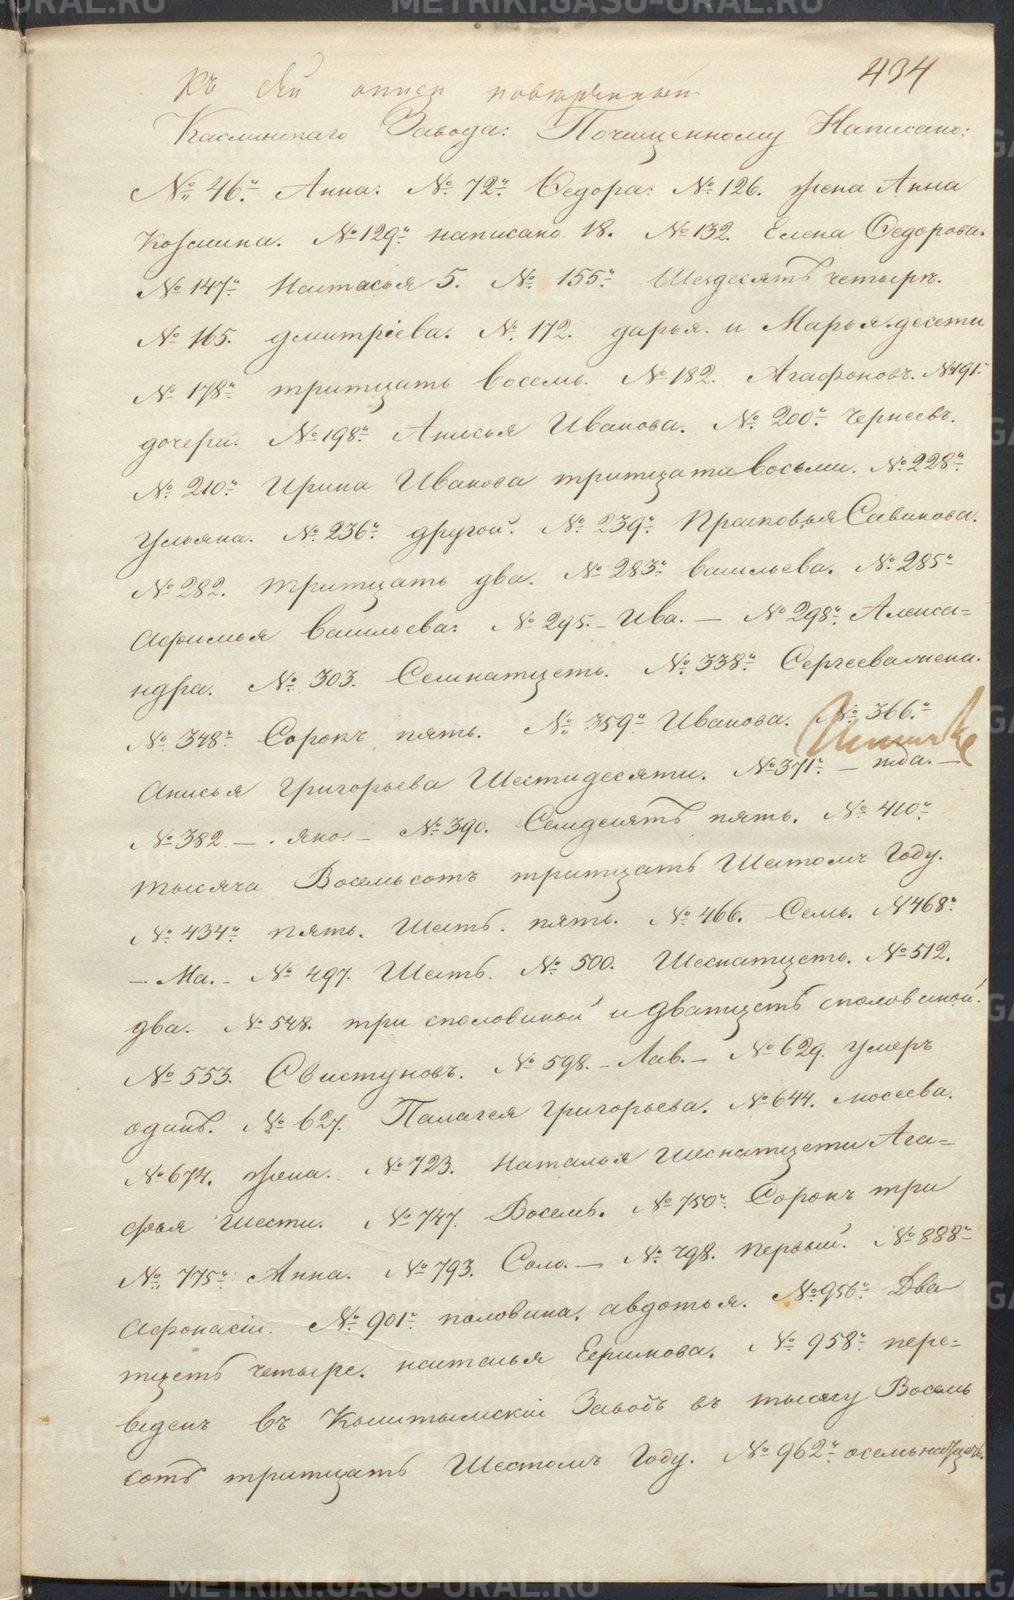 434
Къ сей описи
Каслинскаго Завода: Почищенному Написано:
№ 46й Анна: № 72й Федора: № 126. жена Анна
Козмина. № 129й написано 18. № 132. Елена Федорова.
№ 147й Настасья 5. № 155й Шездесятъ четыре.
№ 165. дмитріева. № 172. дарья и Марья десети
№ 178й тритцать восемь. № 182. Агафоновъ. № 191й
дочери. № 198й Анисья Иванова. № 200й
№ 210й Ирина Иванова тритцати восьми. № 228й
Ульяна. № 236й другой. № 239й Прасковья Савинова.
№ 282. тритцать два. № 283й васильева. № 285й
Афимья васильева: № 295. – Ива. – № 298й Алекса=
ндра. № 303. Семнатцеть. № 338й Сергеева жена.
№ 348й Сорокъ пять. № 359й Иванова. № 366й
Анисья Григорьева Шестидесяти. № 371й – тда. –
№ 382 – . яко. – № 390. Семдесятъ пять. № 410й
тысяча Восемьсотъ тритцать Шестомъ Году.
№ 434й пять. Шесть. пять. № 466. Семь. № 468й
– Ма. – № 497. Шесть. № 500. Шеснатцеть. № 512.
два. № 548. три споловиной и дватцеть споловиной.
№ 553. Свистуновъ. № 598. – Лав. – № 629. умеръ
одинъ. № 627. Палагея Григорьева. № 644. мосеева.
№ 674. жена. № 723. Наталья шеснатцети Ага=
фья Шести. № 747. Восемь. № 750й Сорокъ три
№ 775й Анна. № 793. Соло. – № 798. первый. № 888й
Афонасіи. № 901й половина. авдотья. № 956й Два
тцеть четыре. наталья Ефимова. № 958й пере=
веденъ въ Кыштымскій Заводъ въ тысячу Восемь
сотъ тритцать Шестомъ Году. № 962й осемьнатцеть.